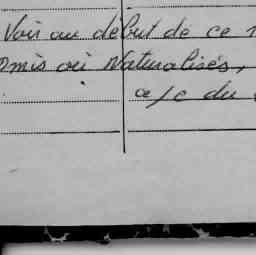 Voir au début de ce
omis ou Naturalisés,
a/c du